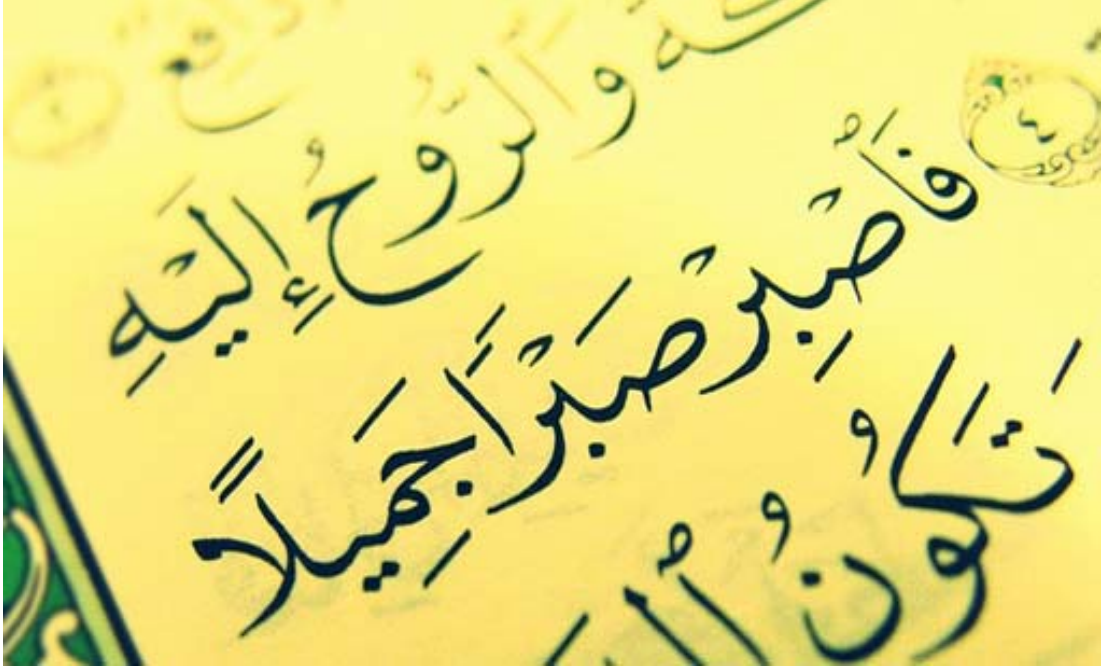 وَالرُّوحُ إِلَيْهِ
٤ فَٱصْبِرْ صَبْرًا جَمِيلًا
تَكُونُ